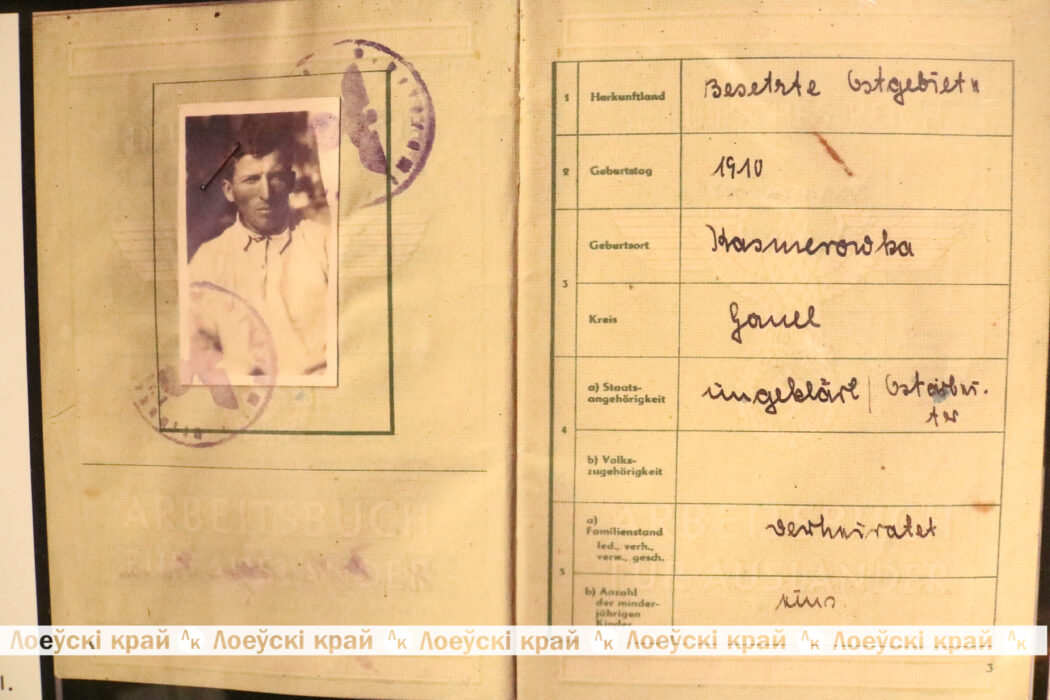 ARBEITSBUCH
FÜR AUSLÄNDER
1 Herkunftland Besetzte Ostgebiete
2 Geburtstag 1910
Geburtsort Kasmerowka
3
Kreis Gomel
a) Staats-
angehörigkeit ungeklärt / Ostarbei-
ter
4
b) Volks-
zugehörigkeit
a)
Familienstand verheiratet
led., verh.,
verw., gesch.
5
b) Anzahl
der minder-
jährigen
Kinder
Лоеўскі край ЛК Лоеўскі край ЛК Лоеўскі край ЛК Лоеўскі край ЛК Лоеўскі край ЛК
3